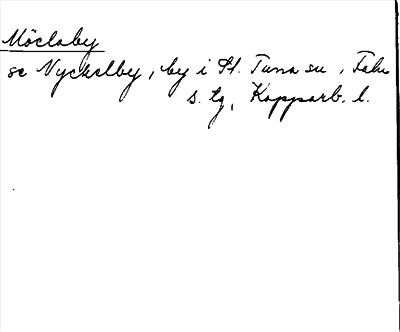 Möclaby
se Nyckelby, by i St. Tuna sn, Falu
s. tg, Kopparb. l.